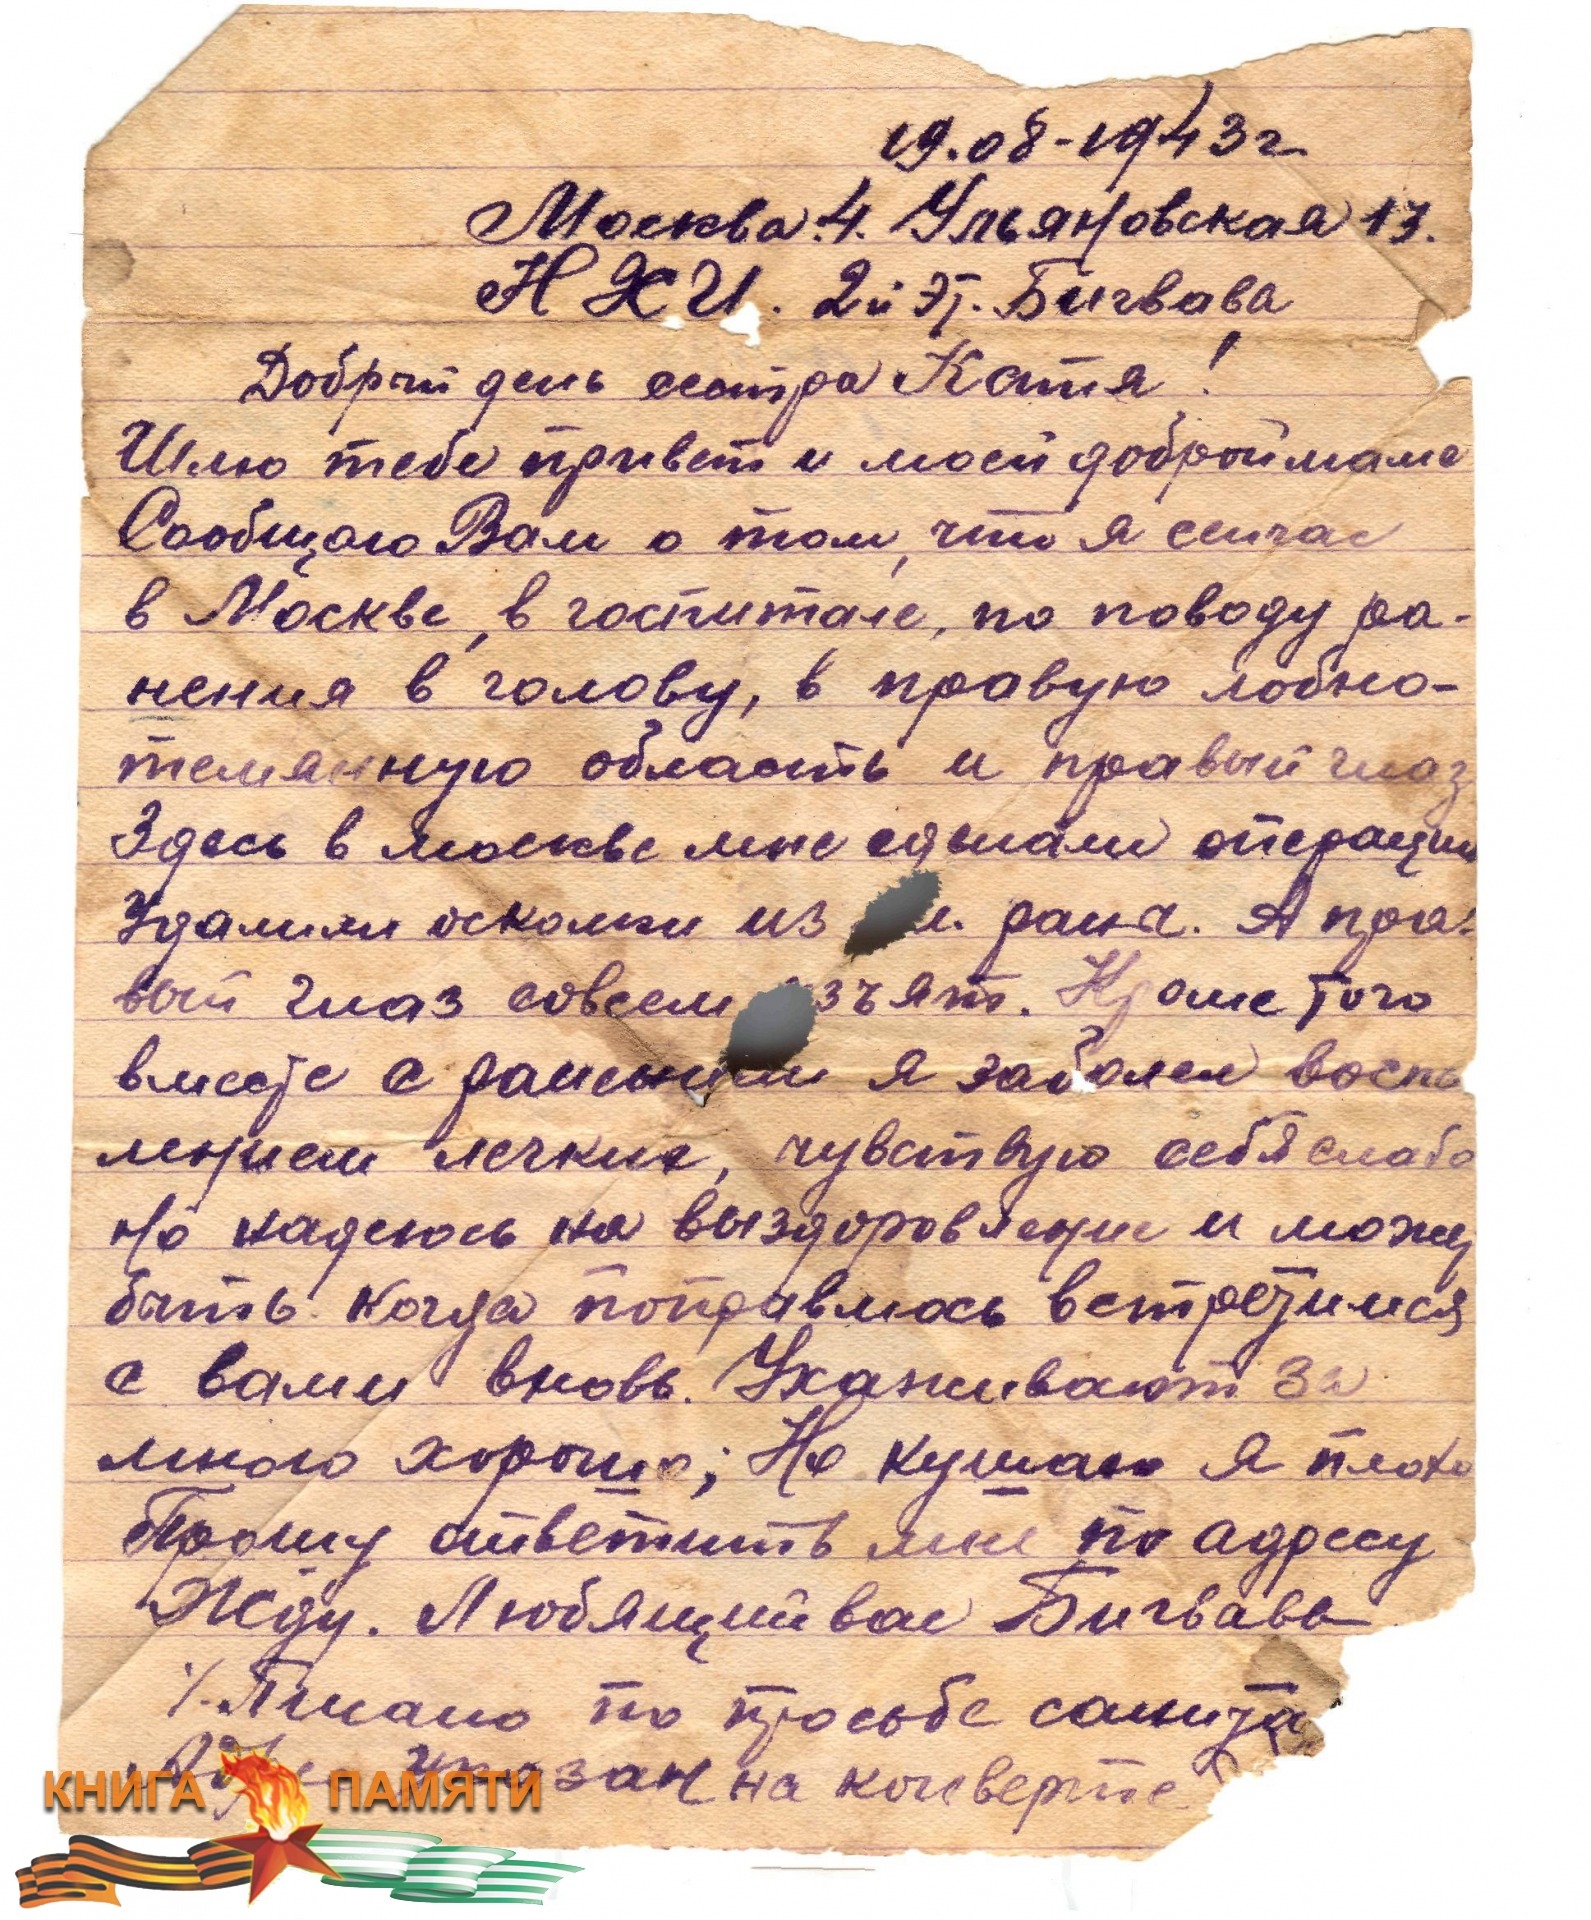 19.08-1943 г
Москва 4. Ульяновская 13.
НХИ. 2й эт. Бигвава
Добрый день сестра Катя!
Шлю тебе привет и моей доброй маме
Сообщаю Вам о том, что я сейчас
в Москве, в госпитале, по поводу ра-
нения в голову, в правую лобно-
теменную область и правый глаз
Здесь в москве мне сделали операции
Удалили осколки из раны. А пра-
вый глаз совсем изъят. Кроме того
вместе с ранением я заболел воспа
лением легких, чувствую себя слабо
Но надеюсь на выздоровление и может
быть когда поправлюсь встретимся
с вами вновь. Ухаживают за
мною хорошо; Но кушаю я плохо
Прошу ответить мне по адресу
Жду. Любящий вас Бигвава
Писано по просьбе
указан на конверте
КНИГА ПАМЯТИ